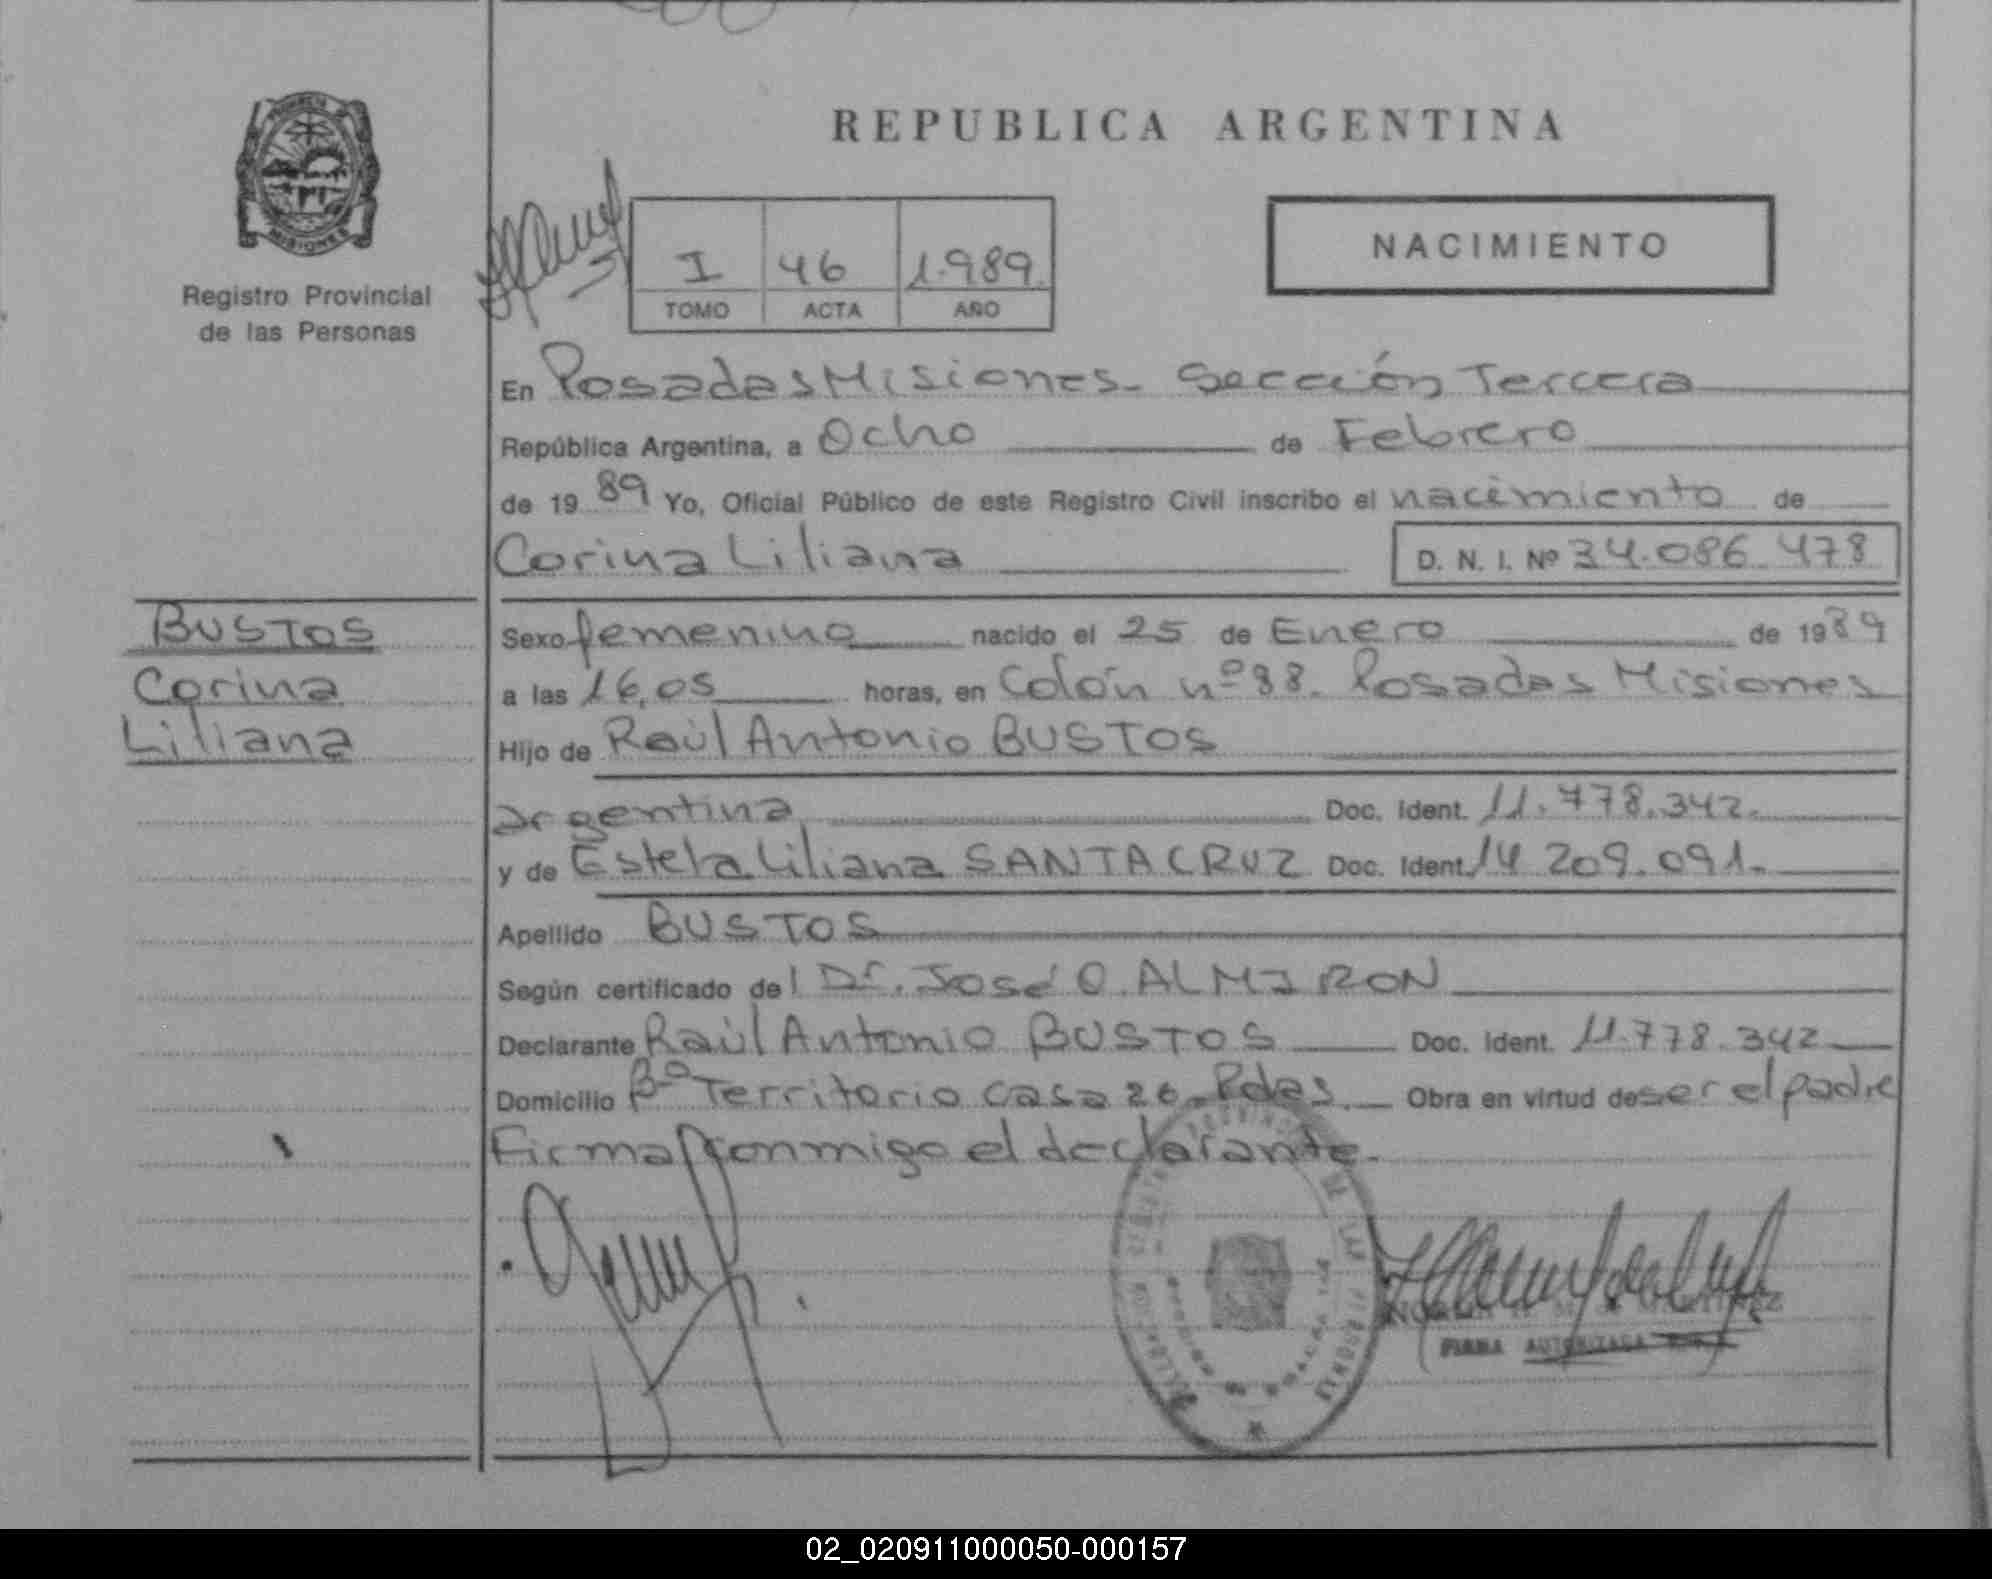 REPUBLICA ARGENTINA
MISIONES
Registro Provincial
de las Personas
I 46 1.989.
TOMO ACTA AÑO
NACIMIENTO
En Posadas Misiones- Sección Tercera
República Argentina, a Ocho de Febrero
de 19 89 Yo, Oficial Público de este Registro Civil inscribo el nacimiento de
Corina Liliana D. N. I. Nº 34.086.478
BUSTOS
Corina
Liliana
Sexo femenino nacido el 25 de Enero de 1989
a las 16,05 horas, en Colón nº 88. Posadas Misiones
Hijo de Raúl Antonio BUSTOS
argentina Doc. Ident. 11.778.342.
y de Estela Liliana SANTACRUZ Doc. Ident. 14 209.091.
Apellido BUSTOS
Según certificado del Dr. José O. ALMIRON
Declarante Raúl Antonio BUSTOS Doc. Ident. 11.778.342
Domicilio Bº Territorio casa 26. Pdas. Obra en virtud de ser el padre
Firma conmigo el declarante.
FIRMA AUTORIZADA
02_020911000050-000157